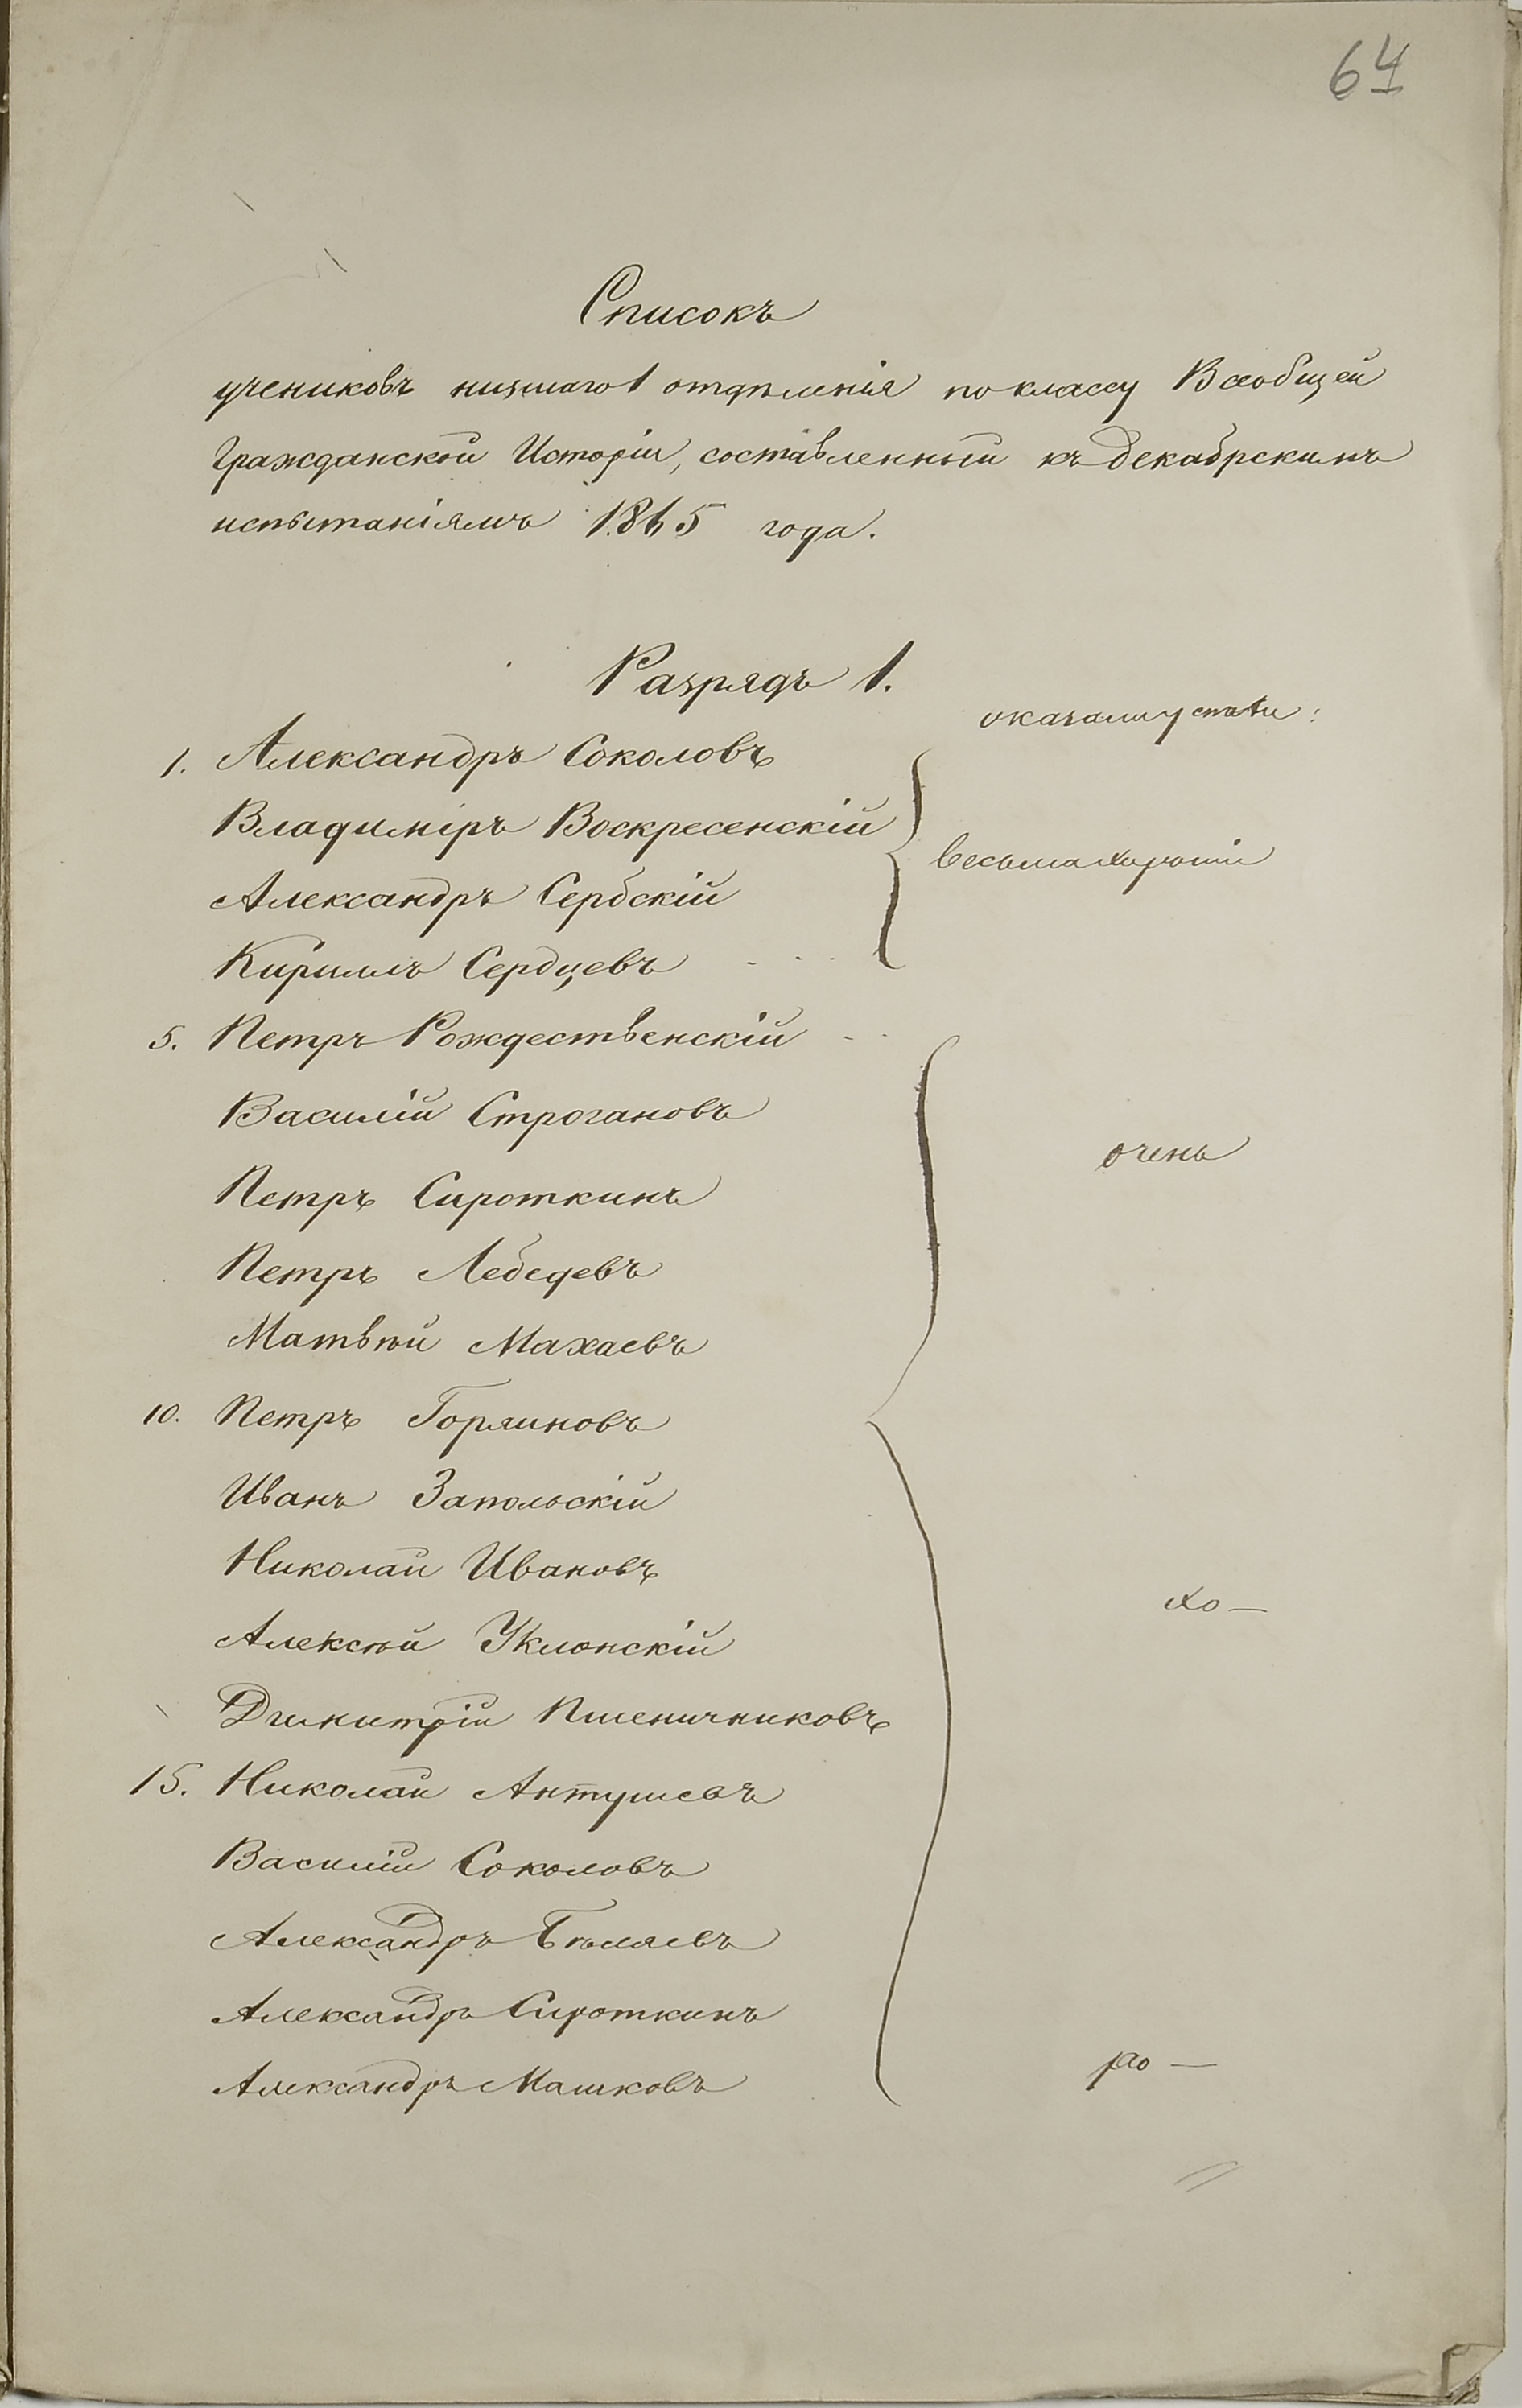 64
Списокъ
учениковъ низшаго 1 отдѣленія по классу Всеобщей
Гражданской Исторіи, составленный къ декабрскимъ
испытаніямъ 1865 года.
Разрядъ 1.
оказали успѣхи:
1. Александръ Соколовъ
Владиміръ Воскресенскій
весьма хорошіе
Александръ Сербскій
Кириллъ Сердцевъ
5. Петръ Рождественскій
Василій Строгановъ
очень
Петръ Сироткинъ
Петръ Лебедевъ
Матвѣй Махаевъ
10. Петръ Горяиновъ
Иванъ Запольскій
Николай Ивановъ
хо—
Алексѣй Уклонскій
Димитрій Пшеничниковъ
15. Николай Антушевъ
Василій Соколовъ
Александръ Бѣляевъ
Александръ Сироткинъ
ро—
Александръ Машковъ